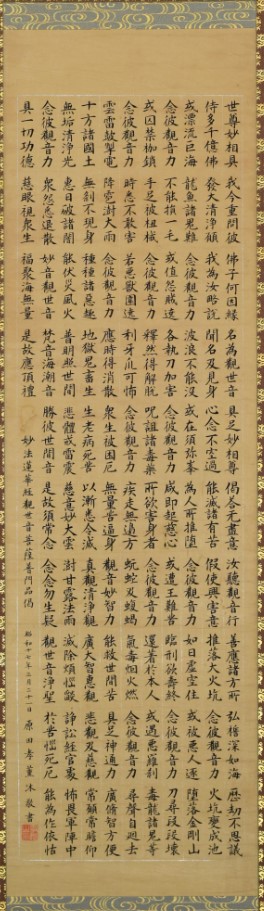 世尊妙相具 我今重問彼 佛子何因緣 名為觀世音 具足妙相尊 偈答無盡意 汝聽觀音行 善應諸方所 弘誓深如海 歷劫不思議
侍多千億佛 發大清淨願 我為汝略說 聞名及見身 心念不空過 能滅諸有苦 假使興害意 推落大火坑 念彼觀音力 火坑變成池
或漂流巨海 龍魚諸鬼難 念彼觀音力 波浪不能沒 或在須彌峯 為人所推墮 念彼觀音力 如日虛空住 或被惡人逐 墮落金剛山
念彼觀音力 不能損一毛 或值怨賊遶 各執刀加害 念彼觀音力 咸即起慈心 或遭王難苦 臨刑欲壽終 念彼觀音力 刀尋段段壞
或囚禁枷鎖 手足被杻械 念彼觀音力 釋然得解脫 呪詛諸毒藥 所欲害身者 念彼觀音力 還著於本人 或遇惡羅剎 毒龍諸鬼等
念彼觀音力 時悉不敢害 若惡獸圍遶 利牙爪可怖 念彼觀音力 疾走無邊方 蚖蛇及蝮蠍 氣毒煙火燃 念彼觀音力 尋聲自迴去
雲雷鼓掣電 降雹澍大雨 念彼觀音力 應時得消散 眾生被困厄 無量苦逼身 觀音妙智力 能救世間苦 具足神通力 廣修智方便
十方諸國土 無剎不現身 種種諸惡趣 地獄鬼畜生 生老病死苦 以漸悉令滅 真觀清淨觀 廣大智慧觀 悲觀及慈觀 常願常瞻仰
無垢清淨光 慧日破諸闇 能伏災風火 普明照世間 悲體戒雷震 慈意妙大雲 澍甘露法雨 滅除煩惱燄 諍訟經官處 怖畏軍陣中
念彼觀音力 眾怨悉退散 妙音觀世音 梵音海潮音 勝彼世間音 是故須常念 念念勿生疑 觀世音淨聖 於苦惱死厄 能為作依怙
具一切功德 慈眼視眾生 福聚海無量 是故應頂禮
妙法蓮華經觀世音菩薩普門品偈
昭和十七年三月二十一日 原田孝 沐敬書